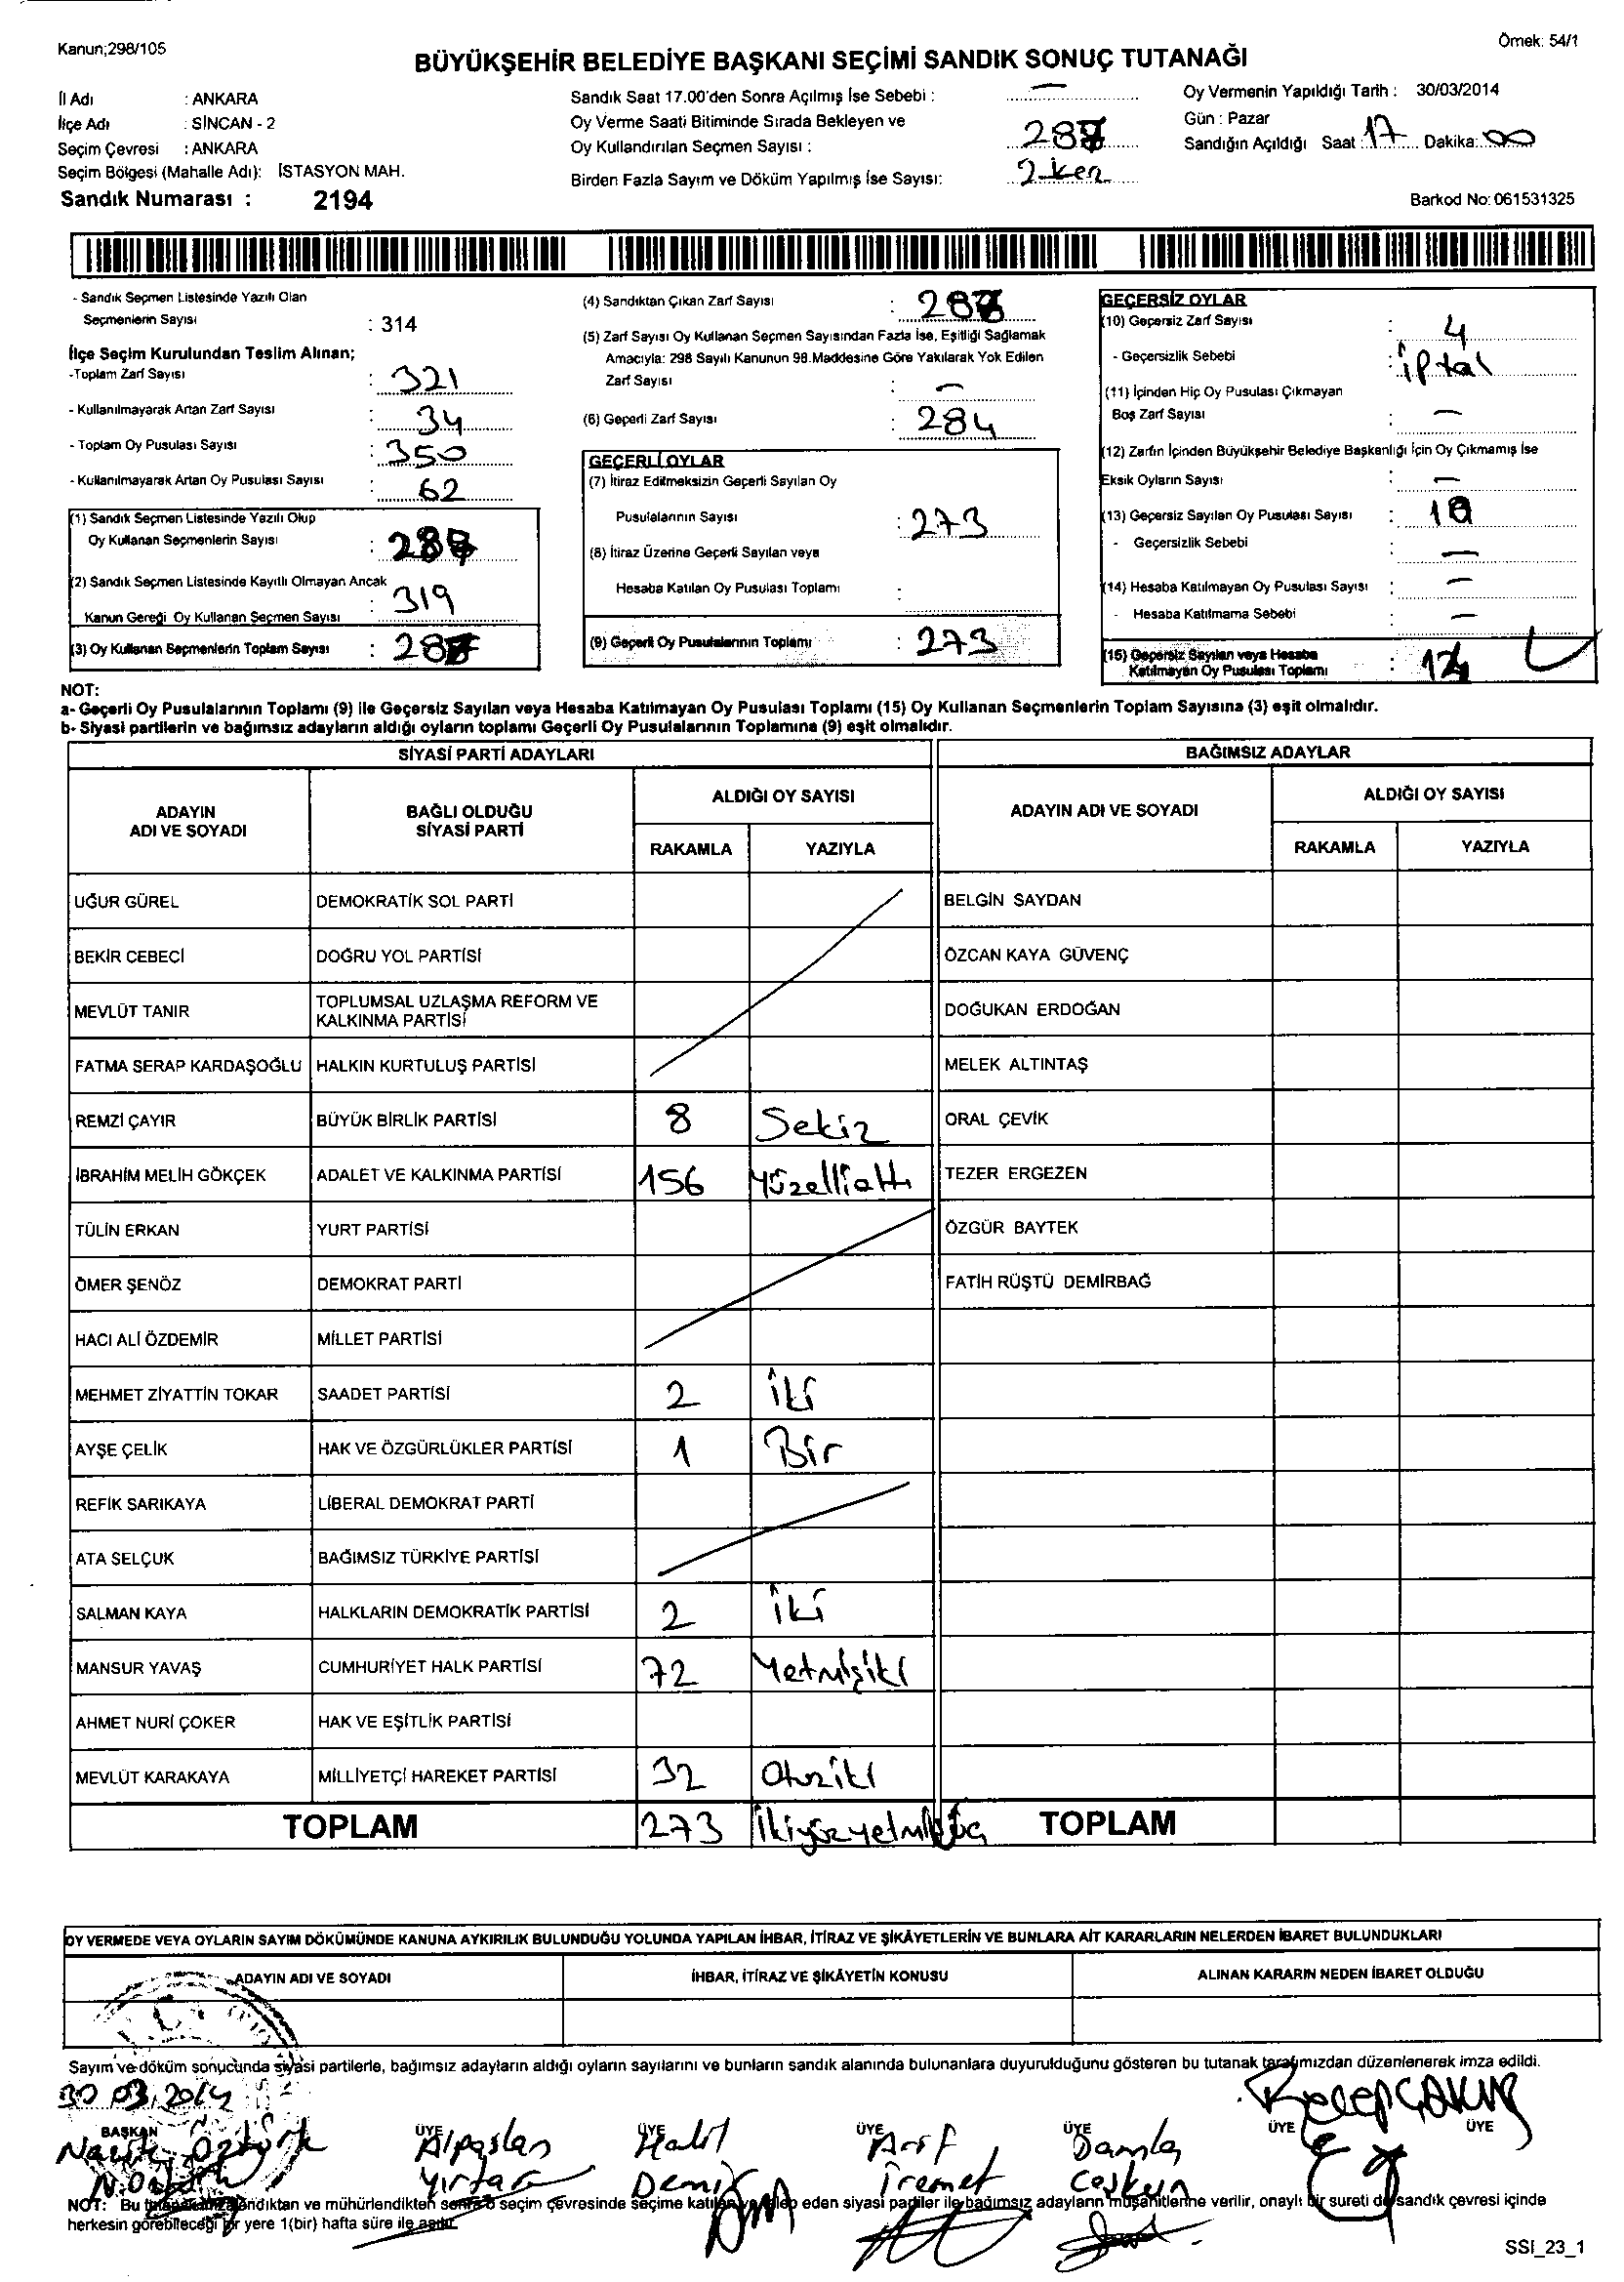 Kanun;298/105
Örnek: 54/1
BÜYÜKŞEHİR BELEDİYE BAŞKANI SEÇİMİ SANDIK SONUÇ TUTANAĞI
İl Adı : ANKARA
İlçe Adı : SİNCAN - 2
Seçim Çevresi : ANKARA
Seçim Bölgesi (Mahalle Adı): İSTASYON MAH.
Sandık Numarası : 2194
Sandık Saat 17.00'den Sonra Açılmış İse Sebebi : —
Oy Verme Saati Bitiminde Sırada Bekleyen ve
Oy Kullandırılan Seçmen Sayısı :
Birden Fazla Sayım ve Döküm Yapılmış İse Sayısı: 2 ker
Oy Vermenin Yapıldığı Tarih : 30/03/2014
Gün : Pazar
Sandığın Açıldığı Saat : 17 Dakika: 00
Barkod No: 061531325
- Sandık Seçmen Listesinde Yazılı Olan
Seçmenlerin Sayısı : 314
İlçe Seçim Kurulundan Teslim Alınan;
-Toplam Zarf Sayısı : 321
- Kullanılmayarak Artan Zarf Sayısı : 34
- Toplam Oy Pusulası Sayısı : 350
- Kullanılmayarak Artan Oy Pusulası Sayısı : 62
(1) Sandık Seçmen Listesinde Yazılı Olup
Oy Kullanan Seçmenlerin Sayısı :
(2) Sandık Seçmen Listesinde Kayıtlı Olmayan Ancak
Kanun Gereği Oy Kullanan Seçmen Sayısı : 319
(3) Oy Kullanan Seçmenlerin Toplam Sayısı :
(4) Sandıktan Çıkan Zarf Sayısı :
(5) Zarf Sayısı Oy Kullanan Seçmen Sayısından Fazla İse, Eşitliği Sağlamak
Amacıyla: 298 Sayılı Kanunun 98.Maddesine Göre Yakılarak Yok Edilen
Zarf Sayısı : —
(6) Geçerli Zarf Sayısı : 284
GEÇERLİ OYLAR
(7) İtiraz Edilmeksizin Geçerli Sayılan Oy
Pusulalarının Sayısı : 273
(8) İtiraz Üzerine Geçerli Sayılan veya
Hesaba Katılan Oy Pusulası Toplamı :
(9) Geçerli Oy Pusulalarının Toplamı : 273
GEÇERSİZ OYLAR
(10) Geçersiz Zarf Sayısı : 4
- Geçersizlik Sebebi : iptal
(11) İçinden Hiç Oy Pusulası Çıkmayan
Boş Zarf Sayısı : —
(12) Zarfın İçinden Büyükşehir Belediye Başkanlığı İçin Oy Çıkmamış İse
Eksik Oyların Sayısı : —
(13) Geçersiz Sayılan Oy Pusulası Sayısı :
- Geçersizlik Sebebi : —
(14) Hesaba Katılmayan Oy Pusulası Sayısı : —
- Hesaba Katılmama Sebebi : —
(15) Geçersiz Sayılan veya Hesaba
Katılmayan Oy Pusulası Toplamı :
NOT:
a- Geçerli Oy Pusulalarının Toplamı (9) ile Geçersiz Sayılan veya Hesaba Katılmayan Oy Pusulası Toplamı (15) Oy Kullanan Seçmenlerin Toplam Sayısına (3) eşit olmalıdır.
b- Siyasi partilerin ve bağımsız adayların aldığı oyların toplamı Geçerli Oy Pusulalarının Toplamına (9) eşit olmalıdır.
SİYASİ PARTİ ADAYLARI BAĞIMSIZ ADAYLAR
ADAYIN ADI VE SOYADI BAĞLI OLDUĞU SİYASİ PARTİ ALDIĞI OY SAYISI ADAYIN ADI VE SOYADI ALDIĞI OY SAYISI
RAKAMLA YAZIYLA RAKAMLA YAZIYLA
UĞUR GÜREL DEMOKRATİK SOL PARTİ BELGİN SAYDAN
BEKİR CEBECİ DOĞRU YOL PARTİSİ ÖZCAN KAYA GÜVENÇ
MEVLÜT TANIR TOPLUMSAL UZLAŞMA REFORM VE KALKINMA PARTİSİ DOĞUKAN ERDOĞAN
FATMA SERAP KARDAŞOĞLU HALKIN KURTULUŞ PARTİSİ MELEK ALTINTAŞ
REMZİ ÇAYIR BÜYÜK BİRLİK PARTİSİ 8 Sekiz ORAL ÇEVİK
İBRAHİM MELİH GÖKÇEK ADALET VE KALKINMA PARTİSİ 156 Yüzellialtı TEZER ERGEZEN
TÜLİN ERKAN YURT PARTİSİ ÖZGÜR BAYTEK
ÖMER ŞENÖZ DEMOKRAT PARTİ FATİH RÜŞTÜ DEMİRBAĞ
HACI ALİ ÖZDEMİR MİLLET PARTİSİ
MEHMET ZİYATTİN TOKAR SAADET PARTİSİ 2 İki
AYŞE ÇELİK HAK VE ÖZGÜRLÜKLER PARTİSİ 1 Bir
REFİK SARIKAYA LİBERAL DEMOKRAT PARTİ
ATA SELÇUK BAĞIMSIZ TÜRKİYE PARTİSİ
SALMAN KAYA HALKLARIN DEMOKRATİK PARTİSİ 2 İki
MANSUR YAVAŞ CUMHURİYET HALK PARTİSİ 72 Yetmişiki
AHMET NURİ ÇOKER HAK VE EŞİTLİK PARTİSİ
MEVLÜT KARAKAYA MİLLİYETÇİ HAREKET PARTİSİ 32 Otuziki
TOPLAM 273 TOPLAM
OY VERMEDE VEYA OYLARIN SAYIM DÖKÜMÜNDE KANUNA AYKIRILIK BULUNDUĞU YOLUNDA YAPILAN İHBAR, İTİRAZ VE ŞİKÂYETLERİN VE BUNLARA AİT KARARLARIN NELERDEN İBARET BULUNDUKLARI
ADAYIN ADI VE SOYADI İHBAR, İTİRAZ VE ŞİKÂYETİN KONUSU ALINAN KARARIN NEDEN İBARET OLDUĞU
Sayım ve döküm sonucunda siyasi partilerle, bağımsız adayların aldığı oyların sayılarını ve bunların sandık alanında bulunanlara duyurulduğunu gösteren bu tutanak tarafımızdan düzenlenerek imza edildi.
30.03.2014
BAŞKAN ÜYE ÜYE ÜYE ÜYE ÜYE ÜYE
Öztürk Alpaslan Halil Arif Damla
Demir Coşkun
NOT: Bu tutanak imzalandıktan ve mühürlendikten sonra o seçim çevresinde seçime katılan ve talep eden siyasi partiler ile bağımsız adayların müşahitlerine verilir, onaylı bir sureti de sandık çevresi içinde
herkesin görebileceği bir yere 1(bir) hafta süre ile asılır.
SSI_23_1